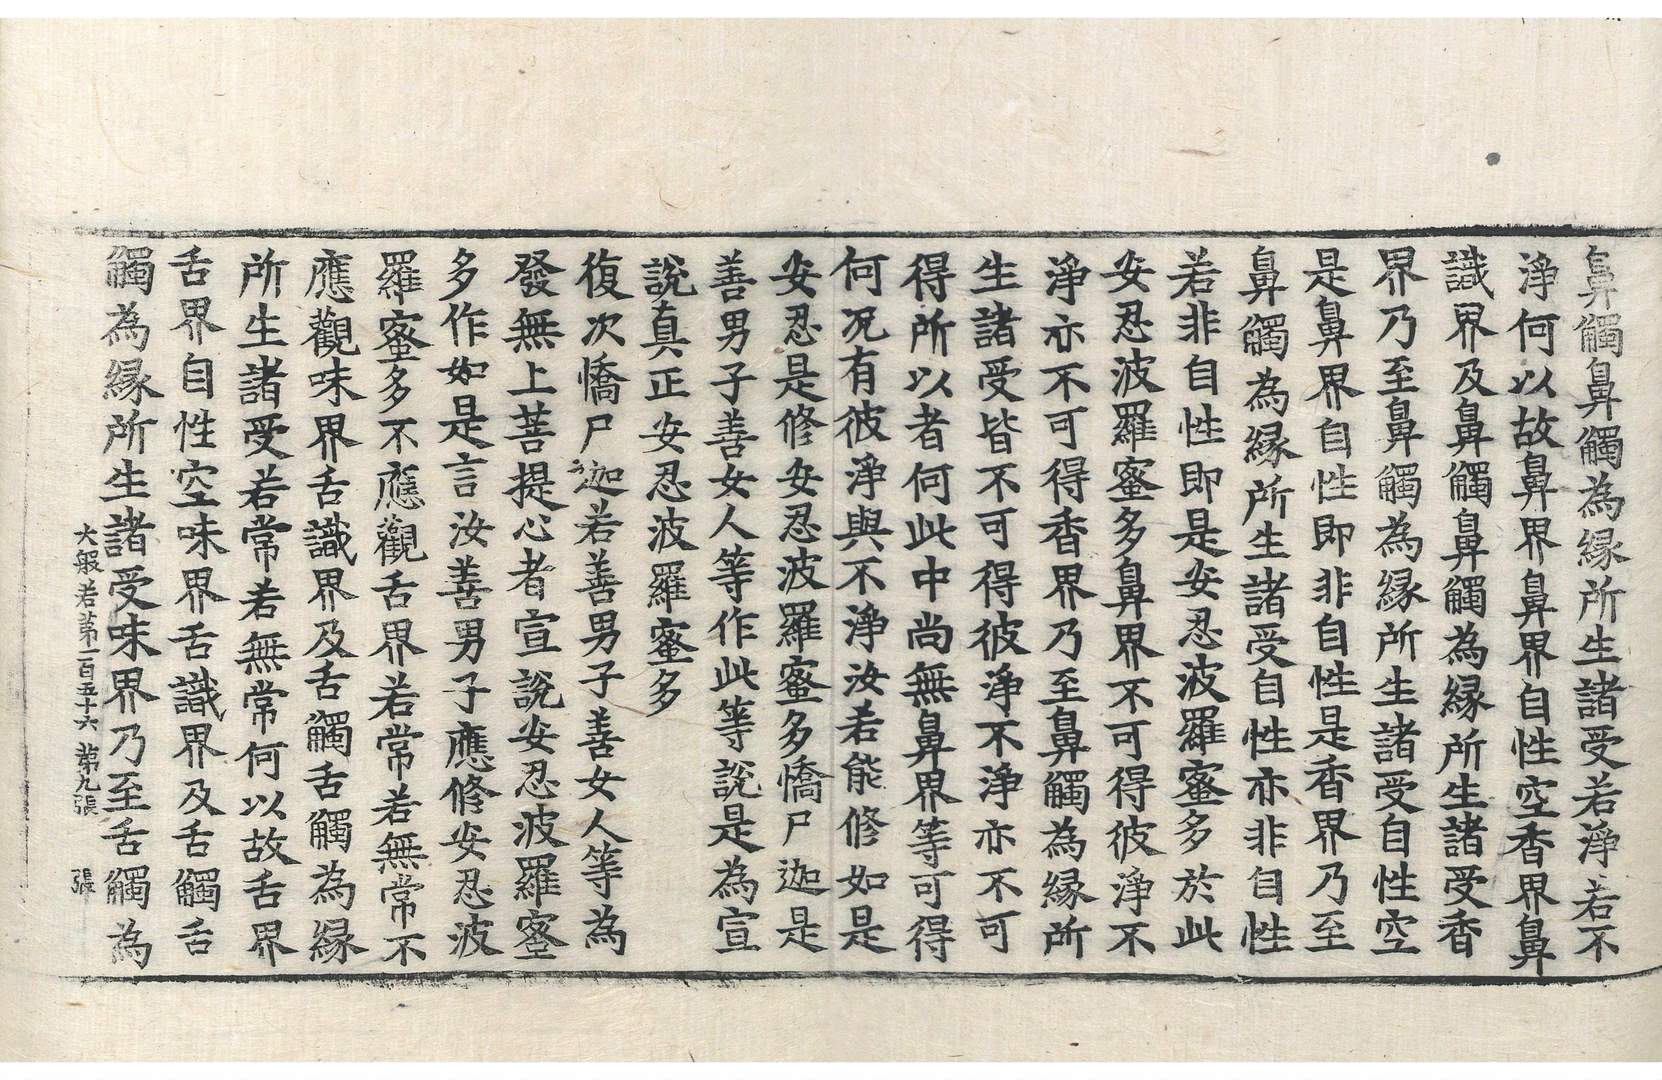 鼻觸鼻觸為緣所生諸受若淨若不
淨何以故鼻界鼻界自性空香界鼻
識界及鼻觸鼻觸為緣所生諸受香
界乃至鼻觸為緣所生諸受自性空
是鼻界自性即非自性是香界乃至
鼻觸為緣所生諸受自性亦非自性
若非自性即是安忍波羅蜜多於此
安忍波羅蜜多鼻界不可得彼淨不
淨亦不可得香界乃至鼻觸為緣所
生諸受皆不可得彼淨不淨亦不可
得所以者何此中尚無鼻界等可得
何况有彼淨與不淨汝若能修如是
安忍是修安忍波羅蜜多憍尸迦是
善男子善女人等作此等說是為宣
說真正安忍波羅蜜多
復次憍尸迦若善男子善女人等為
發無上菩提心者宣說安忍波羅蜜
多作如是言汝善男子應修安忍波
羅蜜多不應觀舌界若常若無常不
應觀味界舌識界及舌觸舌觸為緣
所生諸受若常若無常何以故舌界
舌界自性空味界舌識界及舌觸舌
觸為緣所生諸受味界乃至舌觸為
大般若第一百五十六 第九張 張